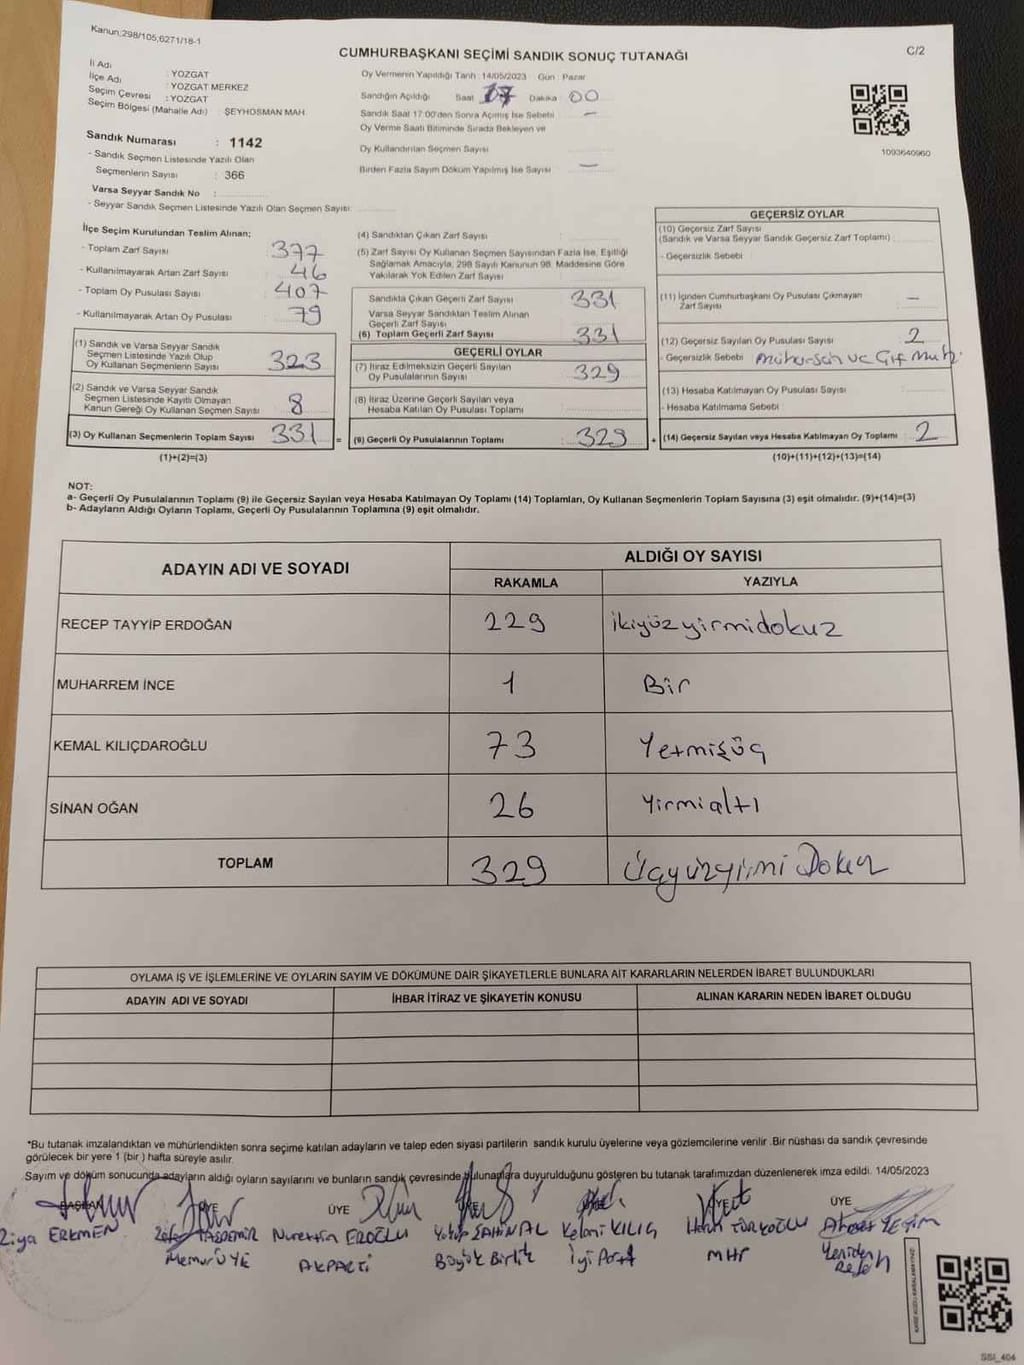 Kanun;298/105,6271/18-1
CUMHURBAŞKANI SEÇİMİ SANDIK SONUÇ TUTANAĞI
C/2
İl Adı : YOZGAT
İlçe Adı : YOZGAT MERKEZ
Seçim Çevresi : YOZGAT
Seçim Bölgesi (Mahalle Adı) : ŞEYHOSMAN MAH.
Sandık Numarası : 1142
- Sandık Seçmen Listesinde Yazılı Olan
Seçmenlerin Sayısı : 366
Varsa Seyyar Sandık No :
- Seyyar Sandık Seçmen Listesinde Yazılı Olan Seçmen Sayısı:
Oy Vermenin Yapıldığı Tarih :14/05/2023 Gün : Pazar
Sandığın Açıldığı Saat 17 Dakika 00
Sandık Saat 17:00'den Sonra Açmış İse Sebebi : —
Oy Verme Saati Bitiminde Sırada Bekleyen ve
Oy Kullandırılan Seçmen Sayısı
Birden Fazla Sayım Döküm Yapılmış İse Sayısı : —
1093640960
İlçe Seçim Kurulundan Teslim Alınan;
- Toplam Zarf Sayısı : 377
- Kullanılmayarak Artan Zarf Sayısı : 46
- Toplam Oy Pusulası Sayısı : 407
- Kullanılmayarak Artan Oy Pusulası : 79
(1) Sandık ve Varsa Seyyar Sandık
Seçmen Listesinde Yazılı Olup
Oy Kullanan Seçmenlerin Sayısı : 323
(2) Sandık ve Varsa Seyyar Sandık
Seçmen Listesinde Kayıtlı Olmayan
Kanun Gereği Oy Kullanan Seçmen Sayısı : 8
(3) Oy Kullanan Seçmenlerin Toplam Sayısı : 331 =
(1)+(2)=(3)
(4) Sandıktan Çıkan Zarf Sayısı :
(5) Zarf Sayısı Oy Kullanan Seçmen Sayısından Fazla İse, Eşitliği
Sağlamak Amacıyla, 298 Sayılı Kanunun 98. Maddesine Göre
Yakılarak Yok Edilen Zarf Sayısı :
Sandıkta Çıkan Geçerli Zarf Sayısı : 331
Varsa Seyyar Sandıktan Teslim Alınan
Geçerli Zarf Sayısı
(6) Toplam Geçerli Zarf Sayısı : 331
GEÇERLİ OYLAR
(7) İtiraz Edilmeksizin Geçerli Sayılan
Oy Pusulalarının Sayısı : 329
(8) İtiraz Üzerine Geçerli Sayılan veya
Hesaba Katılan Oy Pusulası Toplamı :
(9) Geçerli Oy Pusulalarının Toplamı : 329 +
GEÇERSİZ OYLAR
(10) Geçersiz Zarf Sayısı
(Sandık ve Varsa Seyyar Sandık Geçersiz Zarf Toplamı) :
- Geçersizlik Sebebi :
(11) İçinden Cumhurbaşkanı Oy Pusulası Çıkmayan
Zarf Sayısı : —
(12) Geçersiz Sayılan Oy Pusulası Sayısı : 2
- Geçersizlik Sebebi :
(13) Hesaba Katılmayan Oy Pusulası Sayısı :
- Hesaba Katılmama Sebebi :
(14) Geçersiz Sayılan veya Hesaba Katılmayan Oy Toplamı : 2
(10)+(11)+(12)+(13)=(14)
NOT:
a- Geçerli Oy Pusulalarının Toplamı (9) ile Geçersiz Sayılan veya Hesaba Katılmayan Oy Toplamı (14) Toplamları, Oy Kullanan Seçmenlerin Toplam Sayısına (3) eşit olmalıdır. (9)+(14)=(3)
b- Adayların Aldığı Oyların Toplamı, Geçerli Oy Pusulalarının Toplamına (9) eşit olmalıdır.
ADAYIN ADI VE SOYADI ALDIĞI OY SAYISI
RAKAMLA YAZIYLA
RECEP TAYYİP ERDOĞAN 229 ikiyüzyirmidokuz
MUHARREM İNCE 1 Bir
KEMAL KILIÇDAROĞLU 73 Yetmişüç
SİNAN OĞAN 26 Yirmialtı
TOPLAM 329 Üçyüzyirmi Dokuz
OYLAMA İŞ VE İŞLEMLERİNE VE OYLARIN SAYIM VE DÖKÜMÜNE DAİR ŞİKAYETLERLE BUNLARA AİT KARARLARIN NELERDEN İBARET BULUNDUKLARI
ADAYIN ADI VE SOYADI İHBAR İTİRAZ VE ŞİKAYETİN KONUSU ALINAN KARARIN NEDEN İBARET OLDUĞU
*Bu tutanak imzalandıktan ve mühürlendikten sonra seçime katılan adayların ve talep eden siyasi partilerin sandık kurulu üyelerine veya gözlemcilerine verilir .Bir nüshası da sandık çevresinde
görülecek bir yere 1 (bir ) hafta süreyle asılır.
Sayım ve döküm sonucunda adayların aldığı oyların sayılarını ve bunların sandık çevresinde bulunanlara duyurulduğunu gösteren bu tutanak tarafımızdan düzenlenerek imza edildi. 14/05/2023
BAŞKAN ÜYE ÜYE ÜYE ÜYE ÜYE
Ziya ERKMEN TAŞDEMİR Nurettin EROĞLU Yakup ŞAHİNAL Kelami KILIÇ Ahmet
Memur ÜYE AKPARTİ Büyük Birlik İyi Parti MHP Yeniden
Refah
SSI_404